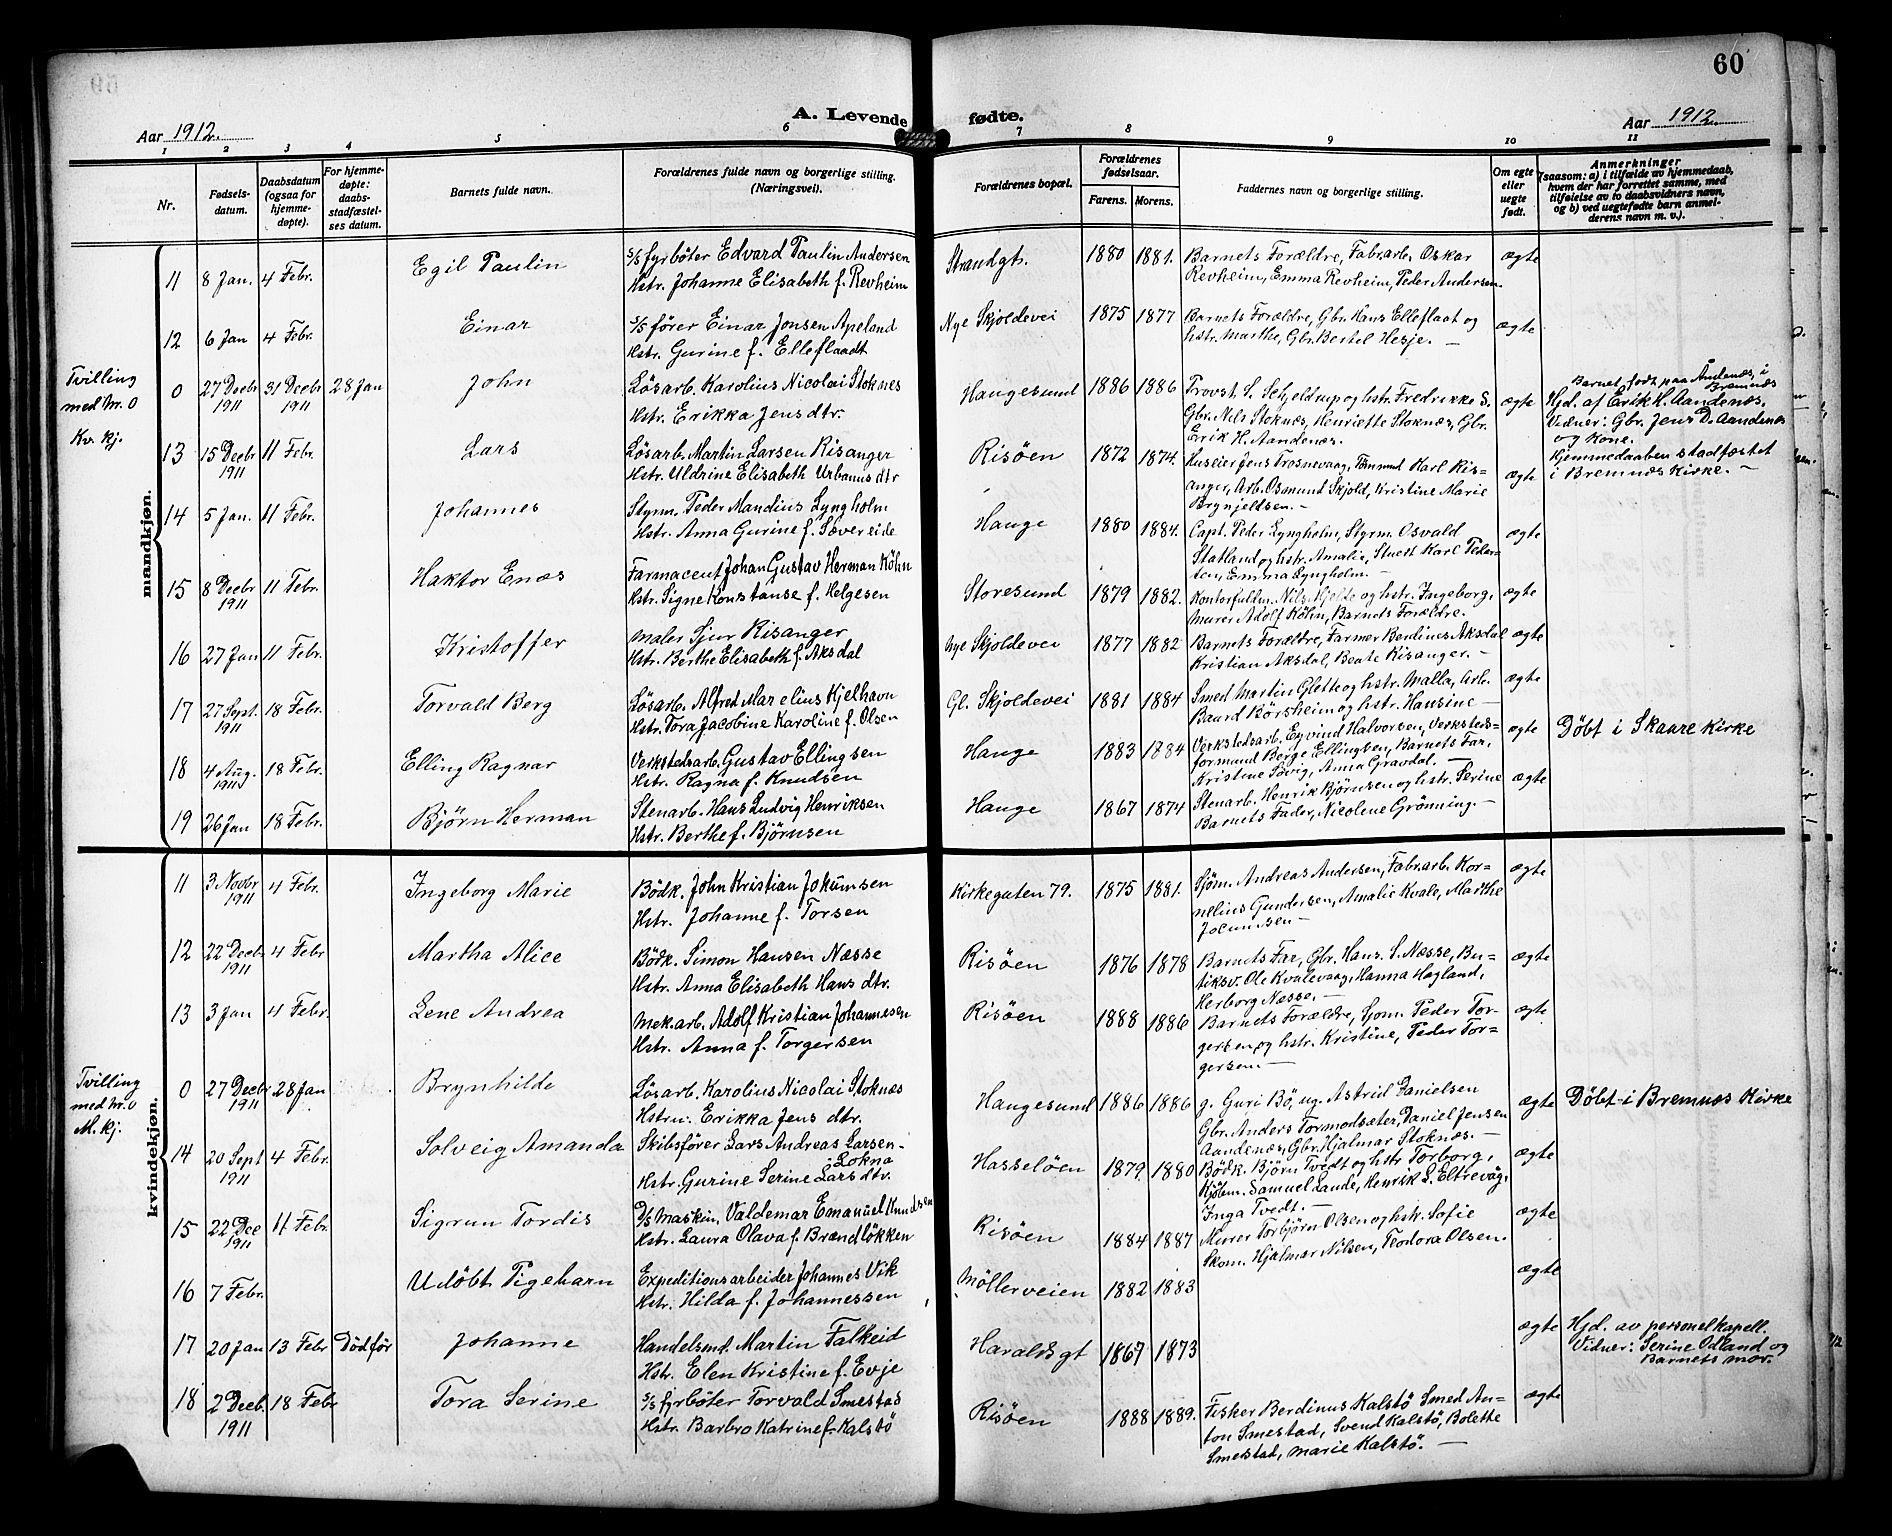 60
A. Levende fødte.
Aar 1912.
Aar 1912.
1 2 3 4 5 6 7 8 9 10 11
Nr.
Fødsels-
datum.
Daabsdatum
(ogsaa for
hjemme-
døpte).
For hjemme-
døpte:
daabs-
stadfæstel-
ses datum.
Barnets fulde navn.
Forældrenes fulde navn og borgerlige stilling.
(Næringsvei).
Forældrenes bopæl.
Forældrenes
fødselsaar.
Farens. Morens.
Faddernes navn og borgerlige stilling.
Om egte
eller
uegte
født.
Anmerkninger
(saasom: a) i tilfælde av hjemmedaab,
hvem der har forrettet samme, med
tilføielse av to daabsvidners navn,
og b) ved uegtefødte barn anmel-
derens navn m. v.).
mandkjøn.
11 8 Jan. 4 Febr. Egil Paulin
S/S fyrböter Edvard Paulin Andersen
Hstr. Johanne Elisabeth f. Revheim
Strandgt. 1880 1881.
Barnets Forældre, Fabr.arb. Oskar
Revheim, Emma Revheim, Peder Andersen.
ægte
12 6 Jan 4 Febr. Einar
S/S fører Einar Jonsen Apeland
Hstr. Gurine f. Elleflaadt
Nye Skjoldevei 1875 1877
Barnets Forældre, Gbr. Hans Elleflaat og
hstr. Marthe, Gbr. Bertel Hesje. —
ægte
Tvilling
med nr. 0
Kv. kj.
0 27 Decbr 1911 31 Decbr 1911 28 Jan John
Løsarb. Karolius Nicolai Stoknes
Hstr. Erikka Jens dtr.
Haugesund 1886 1886
Provst S. Schjeldrup og hstr. Fredrikke S.
Gbr. Nils Stoknæs, Henriette Stoknæs, Gbr.
Erik H. Aandenæs.
ægte
Barnet født paa Åndenæs i
Bremnæs
Hjd. af Erik H. Aandenæs.
Vidner: Gbr. Jens D. Aandenæs
og kone.
Hjemmedaaben stadfæstet
i Bremnæs Kirke. —
13 15 Decbr 1911 11 Febr. Lars
Løsarb. Martin Larsen Risanger
Hstr. Uldrine Elisabeth Urbanus dtr
Risöen 1872 1874.
Huseier Jens Trosnevaag, Tömmd Karl Ris=
anger, Arb. Osmund Skjold, Kristine Marie
Brynjeldsen. —
ægte
14 5 Jan. 11 Febr. Johannes
Styrm. Peder Mandius Lyngholm
Hstr. Anna Gurine f. Sövereide
Hauge 1880 1884.
Capt. Peder Lyngholm, Styrm. Osvald
Statland og hstr. Amalie, Stuert Karl Peder-
sen, Emma Lyngholm. —
ægte
15 8 Decbr 1911 11 Febr. Haktor Enæs
Farmaceut Johan Gustav Herman Köhn
Hstr. Signe Konstanse f. Helgesen
Storesund 1879 1882.
Kontorfullm. Nils Hjelte og hstr. Ingeborg,
Murer Adolf Köhn, Barnets Forældre.
ægte
16 27 Jan 11 Febr. Kristoffer
Maler Sjur Risanger
Hstr. Berthe Elisabeth f. Aksdal
Nye Skjoldevei 1877 1882
Barnets Forældre, Farmer Berdines Aksdal
Kristian Aksdal, Beate Risanger. —
ægte
17 27 Sept. 1911 18 Febr. Torvald Berg
Løsarb. Alfred Marelius Kjelhavn
Hstr. Tora Jacobine Karoline f. Olsen
Gl. Skjoldevei 1881 1884
Smed Martin Glette og hstr. Malla, Arb.
Baard Børsheim og hstr. Hansine —
ægte
18 4 Aug. 1911 18 Febr. Elling Ragnar
Verkstedsarb. Gustav Ellingsen
Hstr. Ragna f. Knudsen
Hauge 1883 1884
Verkstedsarb. Eyvind Halvorsen, Verksteds=
formand Berge Ellingsen, Barnets Far,
Kristine Bvig, Anna Gravdal. —
ægte
Döbt i Skaare Kirke
19 26 Jan 18 Febr. Björn Herman
Stenarb. Hans Ludvig Henriksen
Hstr. Berthe f. Björnsen
Hauge 1867 1874
Stenarb. Henrik Björnsen og hstr. Serine
Barnets Fader, Nicoline Grönning. —
ægte
kvindekjøn.
11 3 Novbr 1911 4 Febr. Ingeborg Marie
Bödk. John Kristian Jokumsen
Hstr. Johanne f. Torsen
Kirkegaten 79. 1875 1881.
Sjöm. Andreas Andersen, Fabr.arb. Kor=
nelius Gundersen, Amalie Kvale, Marthe
Jocumsen —
ægte
12 22 Decbr 1911 4 Febr Martha Alice
Bödk. Simon Hansen Næsse
Hstr. Anna Elisabeth Hans dtr.
Risöen 1876 1878
Barnets Far, Gbr. Hans. S. Næsse, Bu-
tiksv. Ole Kvalevaag, Hanna Hagland,
Herborg Næsse. —
ægte
13 3 Jan 4 Febr. Lene Andrea
Mek.arb. Adolf Kristian Johannesen
Hstr. Anna f. Torgersen
Risöen 1888 1886
Barnets Forældre, Sjöm. Peder Tor-
gersen og hstr. Kristine, Peder Tor=
gersen —
ægte
Tvilling
med nr. 0
M. kj.
0 27 Decbr 1911 28 Jan Brynhilde
Løsarb. Karolius Nicolai Stoknæs
Hstru. Erikka Jens dtr.
Haugesund 1886 1886
g. Guri Bö, ug. Astrid Danielsen
Gbr. Anders Tormodsæter, Daniel Jensen
Aandenæs, Gbr. Hjalmar Stoknæs. —
ægte
Döbt i Bremnæs Kirke
14 20 Sept 1911 4 Febr. Solveig Amanda
Skibsfører Lars Andreas Larsen-
Lokna
Hstr. Gurine Serine Lars dtr.
Hasselöen 1879. 1880
Bödk. Björn Tvedt og hstr Torborg,
Kjöbm. Samuel Lande, Henrik S. Eltrevåg,
Inga Tvedt. —
ægte
15 22 Dec 1911 11 Febr. Sigrun Tordis
D/S Maskin. Valdemar Emanuel Knudsen
Hstr. Laura Olava f. Brændlökken
Risöen 1884 1887
Murer Torbjörn Olsen og hstr. Sofie
Skom. Hjalmar Nilsen, Teodora Olsen.
ægte
16 7 Febr. Udöbt Pigebarn
Expeditionsarbeider Johannes Vik
Hstr. Hilda f. Johannessen
Möllerveien 1882 1883
ægte
17 20 Jan 13 Febr Död för Johanne
Handelsmd. Martin Falkeid
Hstr. Elen Kristine f. Evje
Haralds gt 1867 1873
ægte
Hjd. av personelkapell.
Vidner: Serine Odland og
Barnets mor.
18 2 Decb. 1911 18 Febr Tora Serine
S/S fyrböter Torvald Smestad
Hstr. Barbro Katrine f. Kalstö
Risöen 1888 1889.
Fisker Berdinus Kalstö Smed An-
ton Smestad, Svend Kalstö, Bolette
Smestad, Marie Kalstö. —
ægte